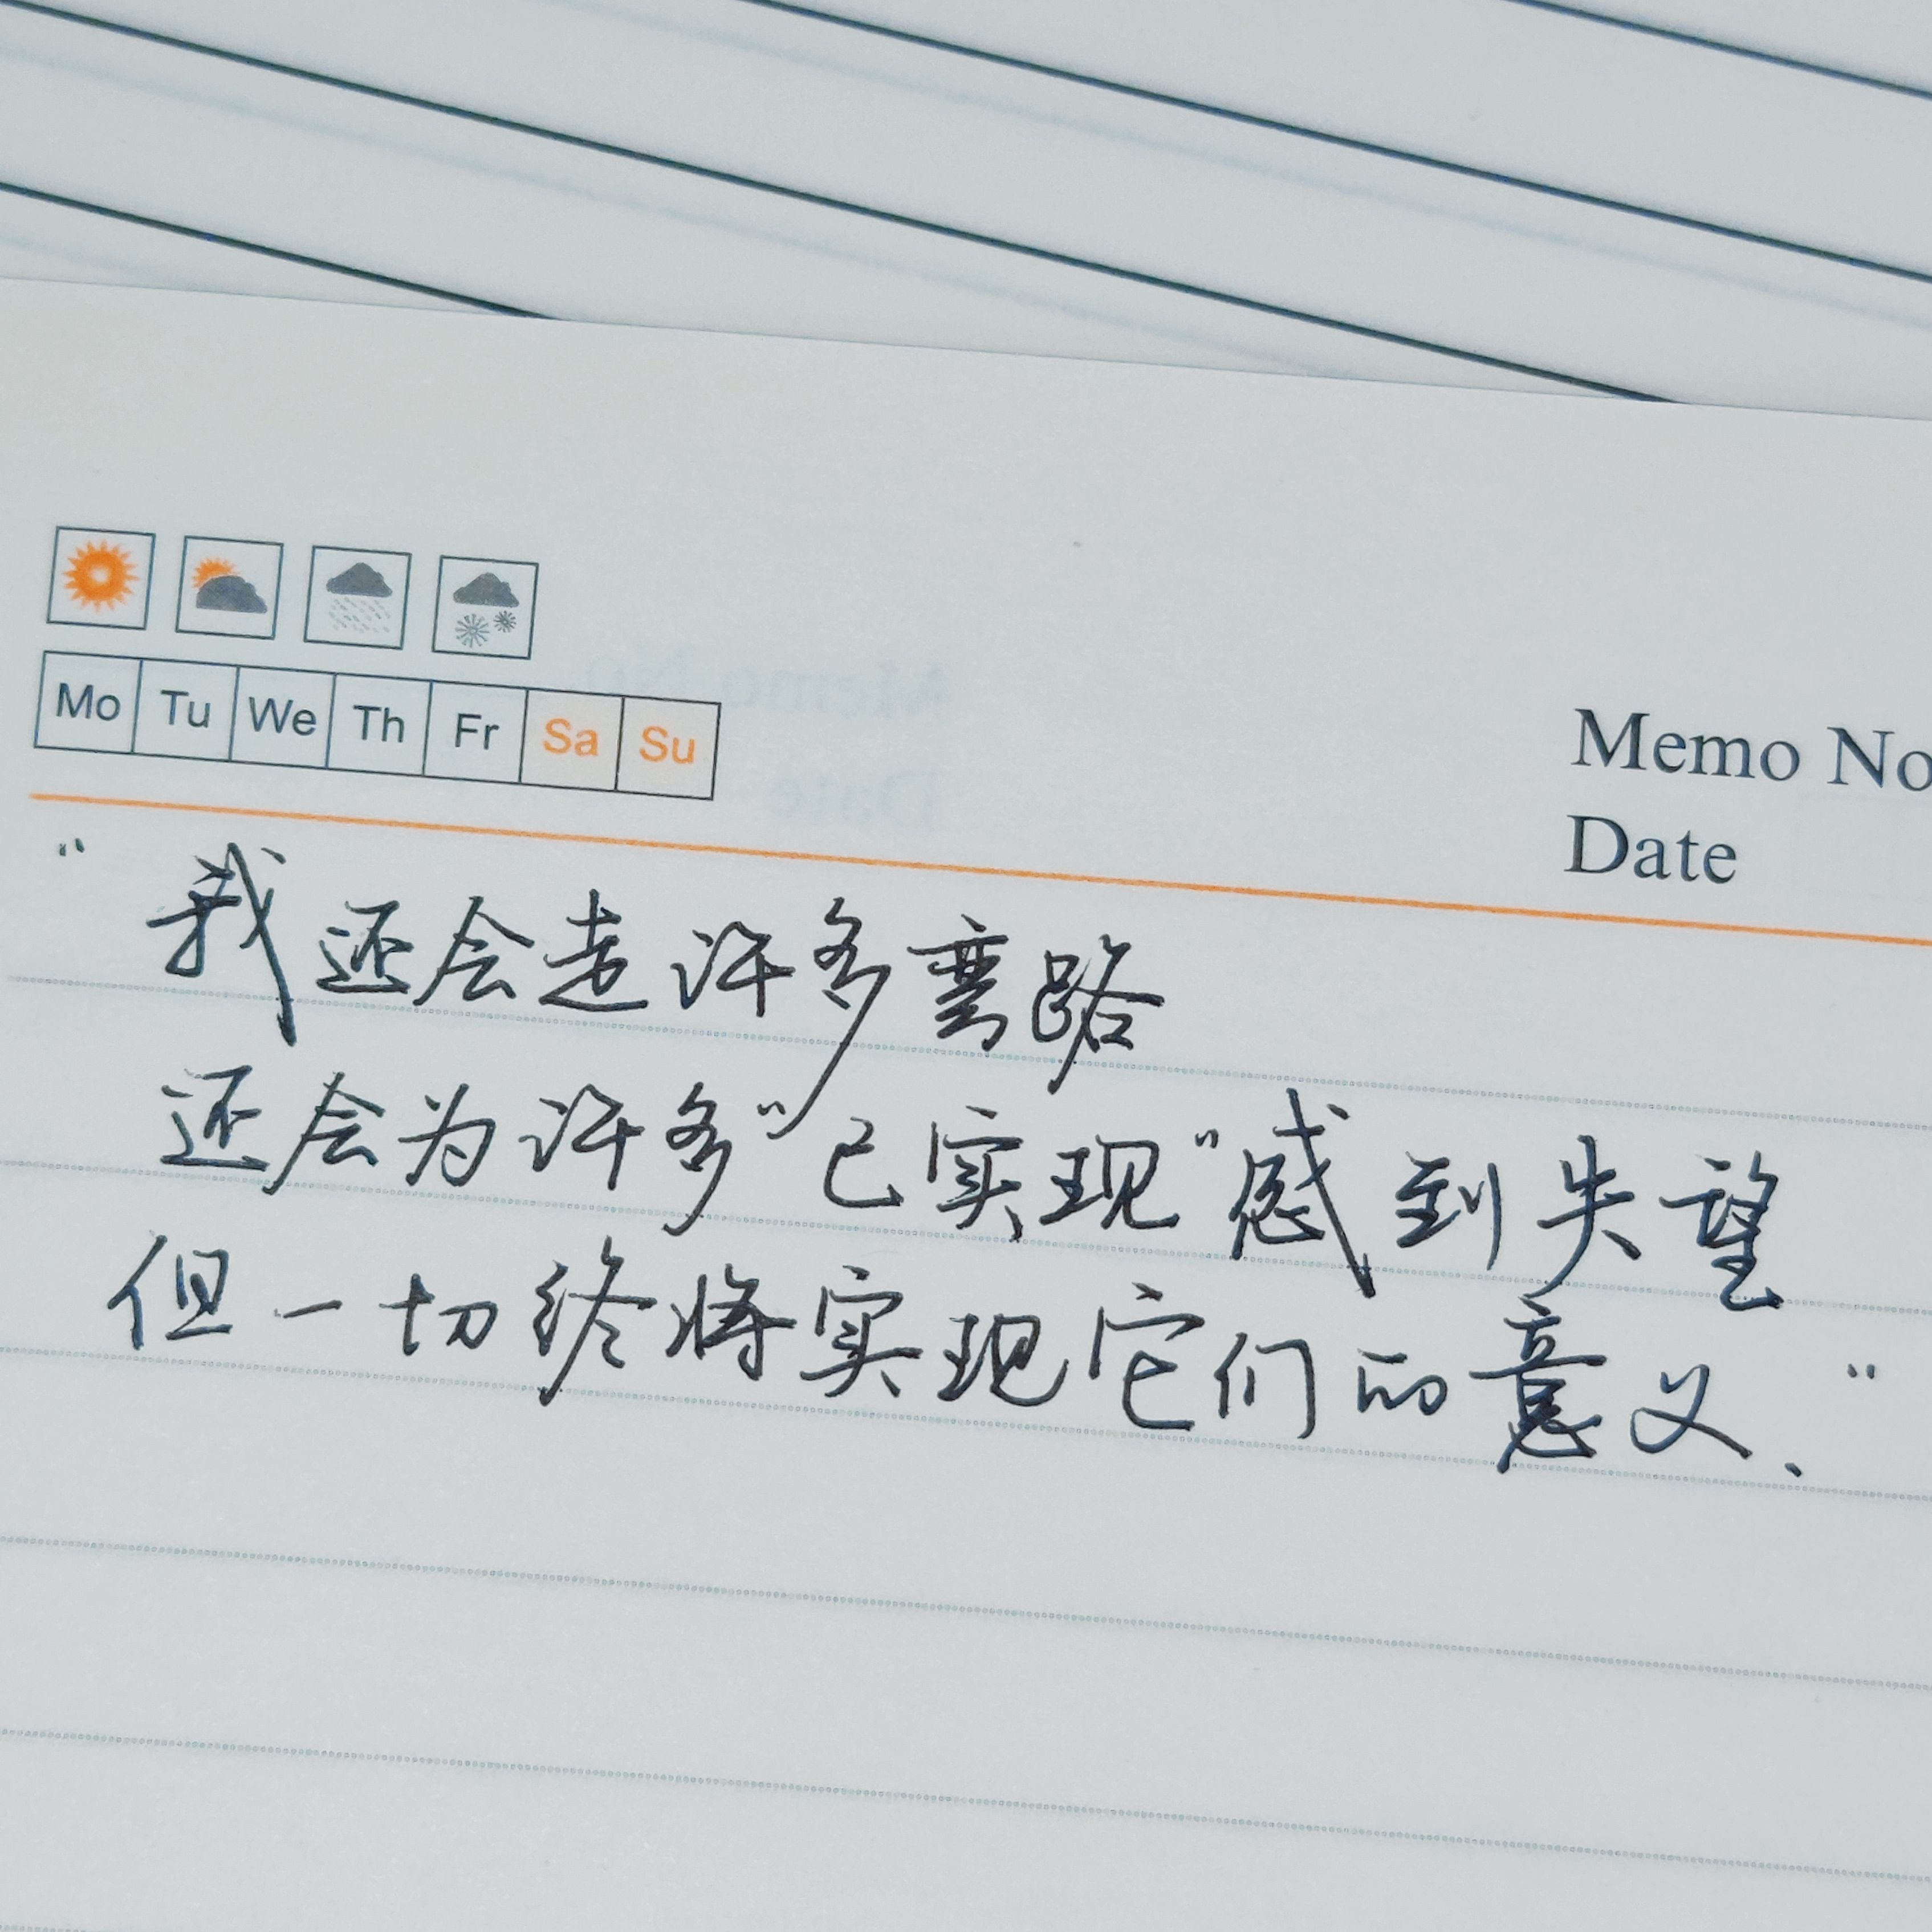 Mo Tu We Th Fr Sa Su
Memo No
Date
“我还会走许多弯路
还会为许多“已实现”感到失望
但一切终将实现它们的意义、”